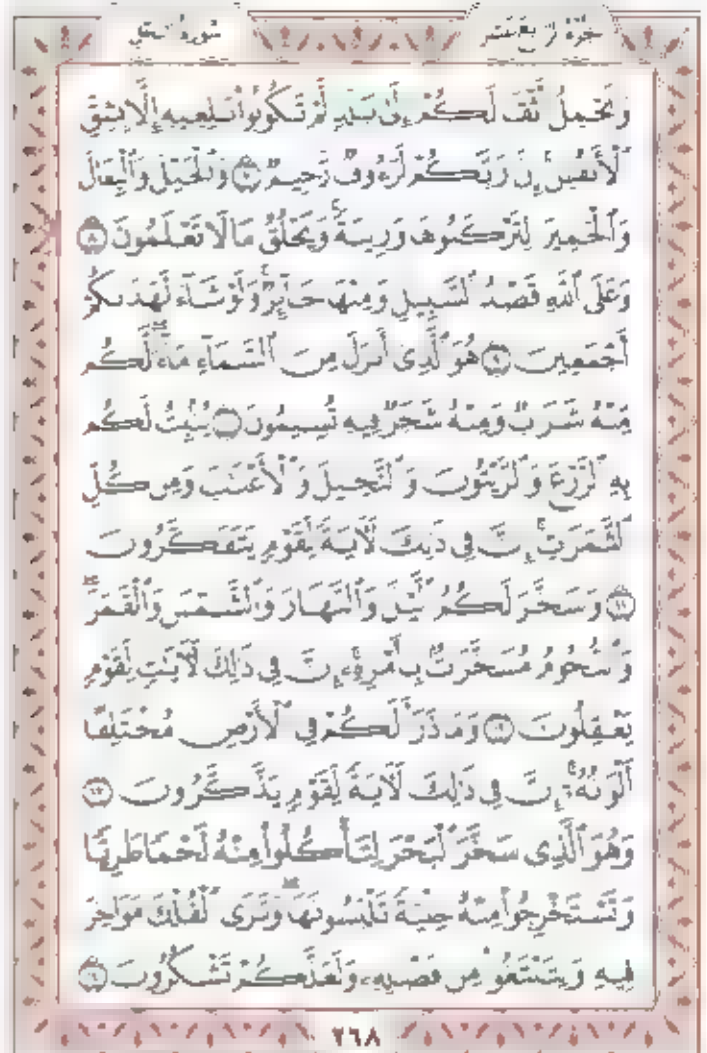 سُورَةُ النَّحْلِ الجُزْءُ الرَّابِعَ عَشَرَ
وَتَحْمِلُ أَثْقَالَكُمْ إِلَىٰ بَلَدٍ لَّمْ تَكُونُوا۟ بَـٰلِغِيهِ إِلَّا بِشِقِّ
ٱلْأَنفُسِ ۚ إِنَّ رَبَّكُمْ لَرَءُوفٌ رَّحِيمٌ ٧ وَٱلْخَيْلَ وَٱلْبِغَالَ
وَٱلْحَمِيرَ لِتَرْكَبُوهَا وَزِينَةً ۚ وَيَخْلُقُ مَا لَا تَعْلَمُونَ ٨
وَعَلَى ٱللَّهِ قَصْدُ ٱلسَّبِيلِ وَمِنْهَا جَآئِرٌ ۚ وَلَوْ شَآءَ لَهَدَىٰكُمْ
أَجْمَعِينَ ٩ هُوَ ٱلَّذِىٓ أَنزَلَ مِنَ ٱلسَّمَآءِ مَآءً ۖ لَّكُم
مِّنْهُ شَرَابٌ وَمِنْهُ شَجَرٌ فِيهِ تُسِيمُونَ ١٠ يُنۢبِتُ لَكُم
بِهِ ٱلزَّرْعَ وَٱلزَّيْتُونَ وَٱلنَّخِيلَ وَٱلْأَعْنَـٰبَ وَمِن كُلِّ
ٱلثَّمَرَٰتِ ۗ إِنَّ فِى ذَٰلِكَ لَـَٔايَةً لِّقَوْمٍ يَتَفَكَّرُونَ
١١ وَسَخَّرَ لَكُمُ ٱلَّيْلَ وَٱلنَّهَارَ وَٱلشَّمْسَ وَٱلْقَمَرَ ۖ
وَٱلنُّجُومُ مُسَخَّرَٰتٌۢ بِأَمْرِهِۦٓ ۗ إِنَّ فِى ذَٰلِكَ لَـَٔايَـٰتٍ لِّقَوْمٍ
يَعْقِلُونَ ١٢ وَمَا ذَرَأَ لَكُمْ فِى ٱلْأَرْضِ مُخْتَلِفًا
أَلْوَٰنُهُۥٓ ۗ إِنَّ فِى ذَٰلِكَ لَـَٔايَةً لِّقَوْمٍ يَذَّكَّرُونَ ١٣
وَهُوَ ٱلَّذِى سَخَّرَ ٱلْبَحْرَ لِتَأْكُلُوا۟ مِنْهُ لَحْمًا طَرِيًّا
وَتَسْتَخْرِجُوا۟ مِنْهُ حِلْيَةً تَلْبَسُونَهَا وَتَرَى ٱلْفُلْكَ مَوَاخِرَ
فِيهِ وَلِتَبْتَغُوا۟ مِن فَضْلِهِۦ وَلَعَلَّكُمْ تَشْكُرُونَ ١٤
٢٦٨